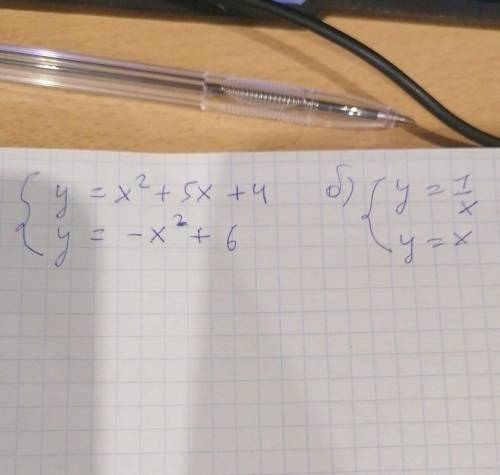 { y = x² + 5x + 4
y = -x² + 6
б) { y = 1/x
y = x